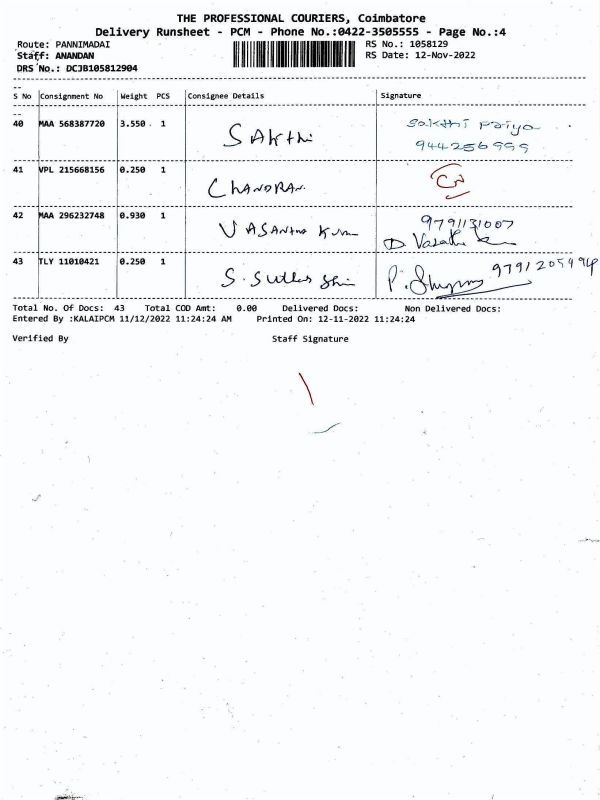 THE PROFESSIONAL COURIERS, Coimbatore
Delivery Runsheet - PCM - Phone No.:0422-3505555 - Page No.:4
Route: PANNIMADAI RS No.: 1058129
Staff: ANANDAN RS Date: 12-Nov-2022
DRS No.: DCJB105812904
S No Consignment No Weight PCS Consignee Details Signature
40 MAA 568387720 3.550 1 SAKthi Sakthi Priya
944256999
41 VPL 215668156 0.250 1 CHANDRAN.
42 MAA 296232748 0.930 1 VASANtha Kum 9791131007
D Vasantha
43 TLY 11010421 0.250 1 S. P. 9791205494
Total No. Of Docs: 43 Total COD Amt: 0.00 Delivered Docs: Non Delivered Docs:
Entered By :KALAIPCM 11/12/2022 11:24:24 AM Printed On: 12-11-2022 11:24:24
Verified By Staff Signature